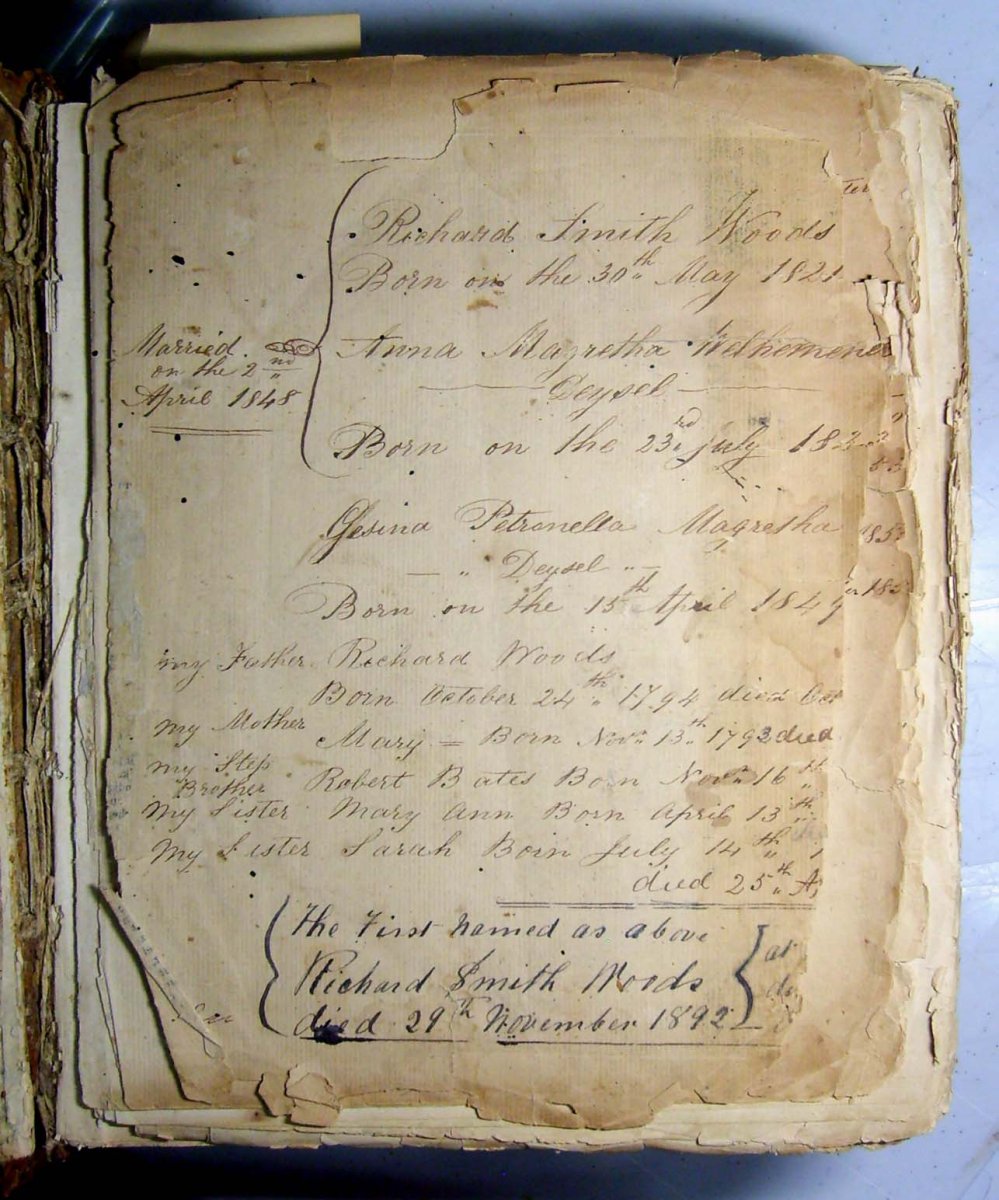 Richard Smith Woods
Born on the 30th May 1821
Married
on the 2nd
April 1848
Anna Magretha Welhemenel
Deysel
Born on the 23rd july 183
Gesina Petronella Magretha
— " Deysel " —
Born on the 15th April 1849
my Father Richard Woods
Born October 24th 1794 died Oct
my Mother Mary = Born Novr 13th 1793 died
my Step
Brother Robert Bates Born Novr 16th
my Sister Mary Ann Born April 13th
my Sister Sarah Born July 14th 1
died 25th A
The First named as above
Richard Smith Woods
died 29th November 1892